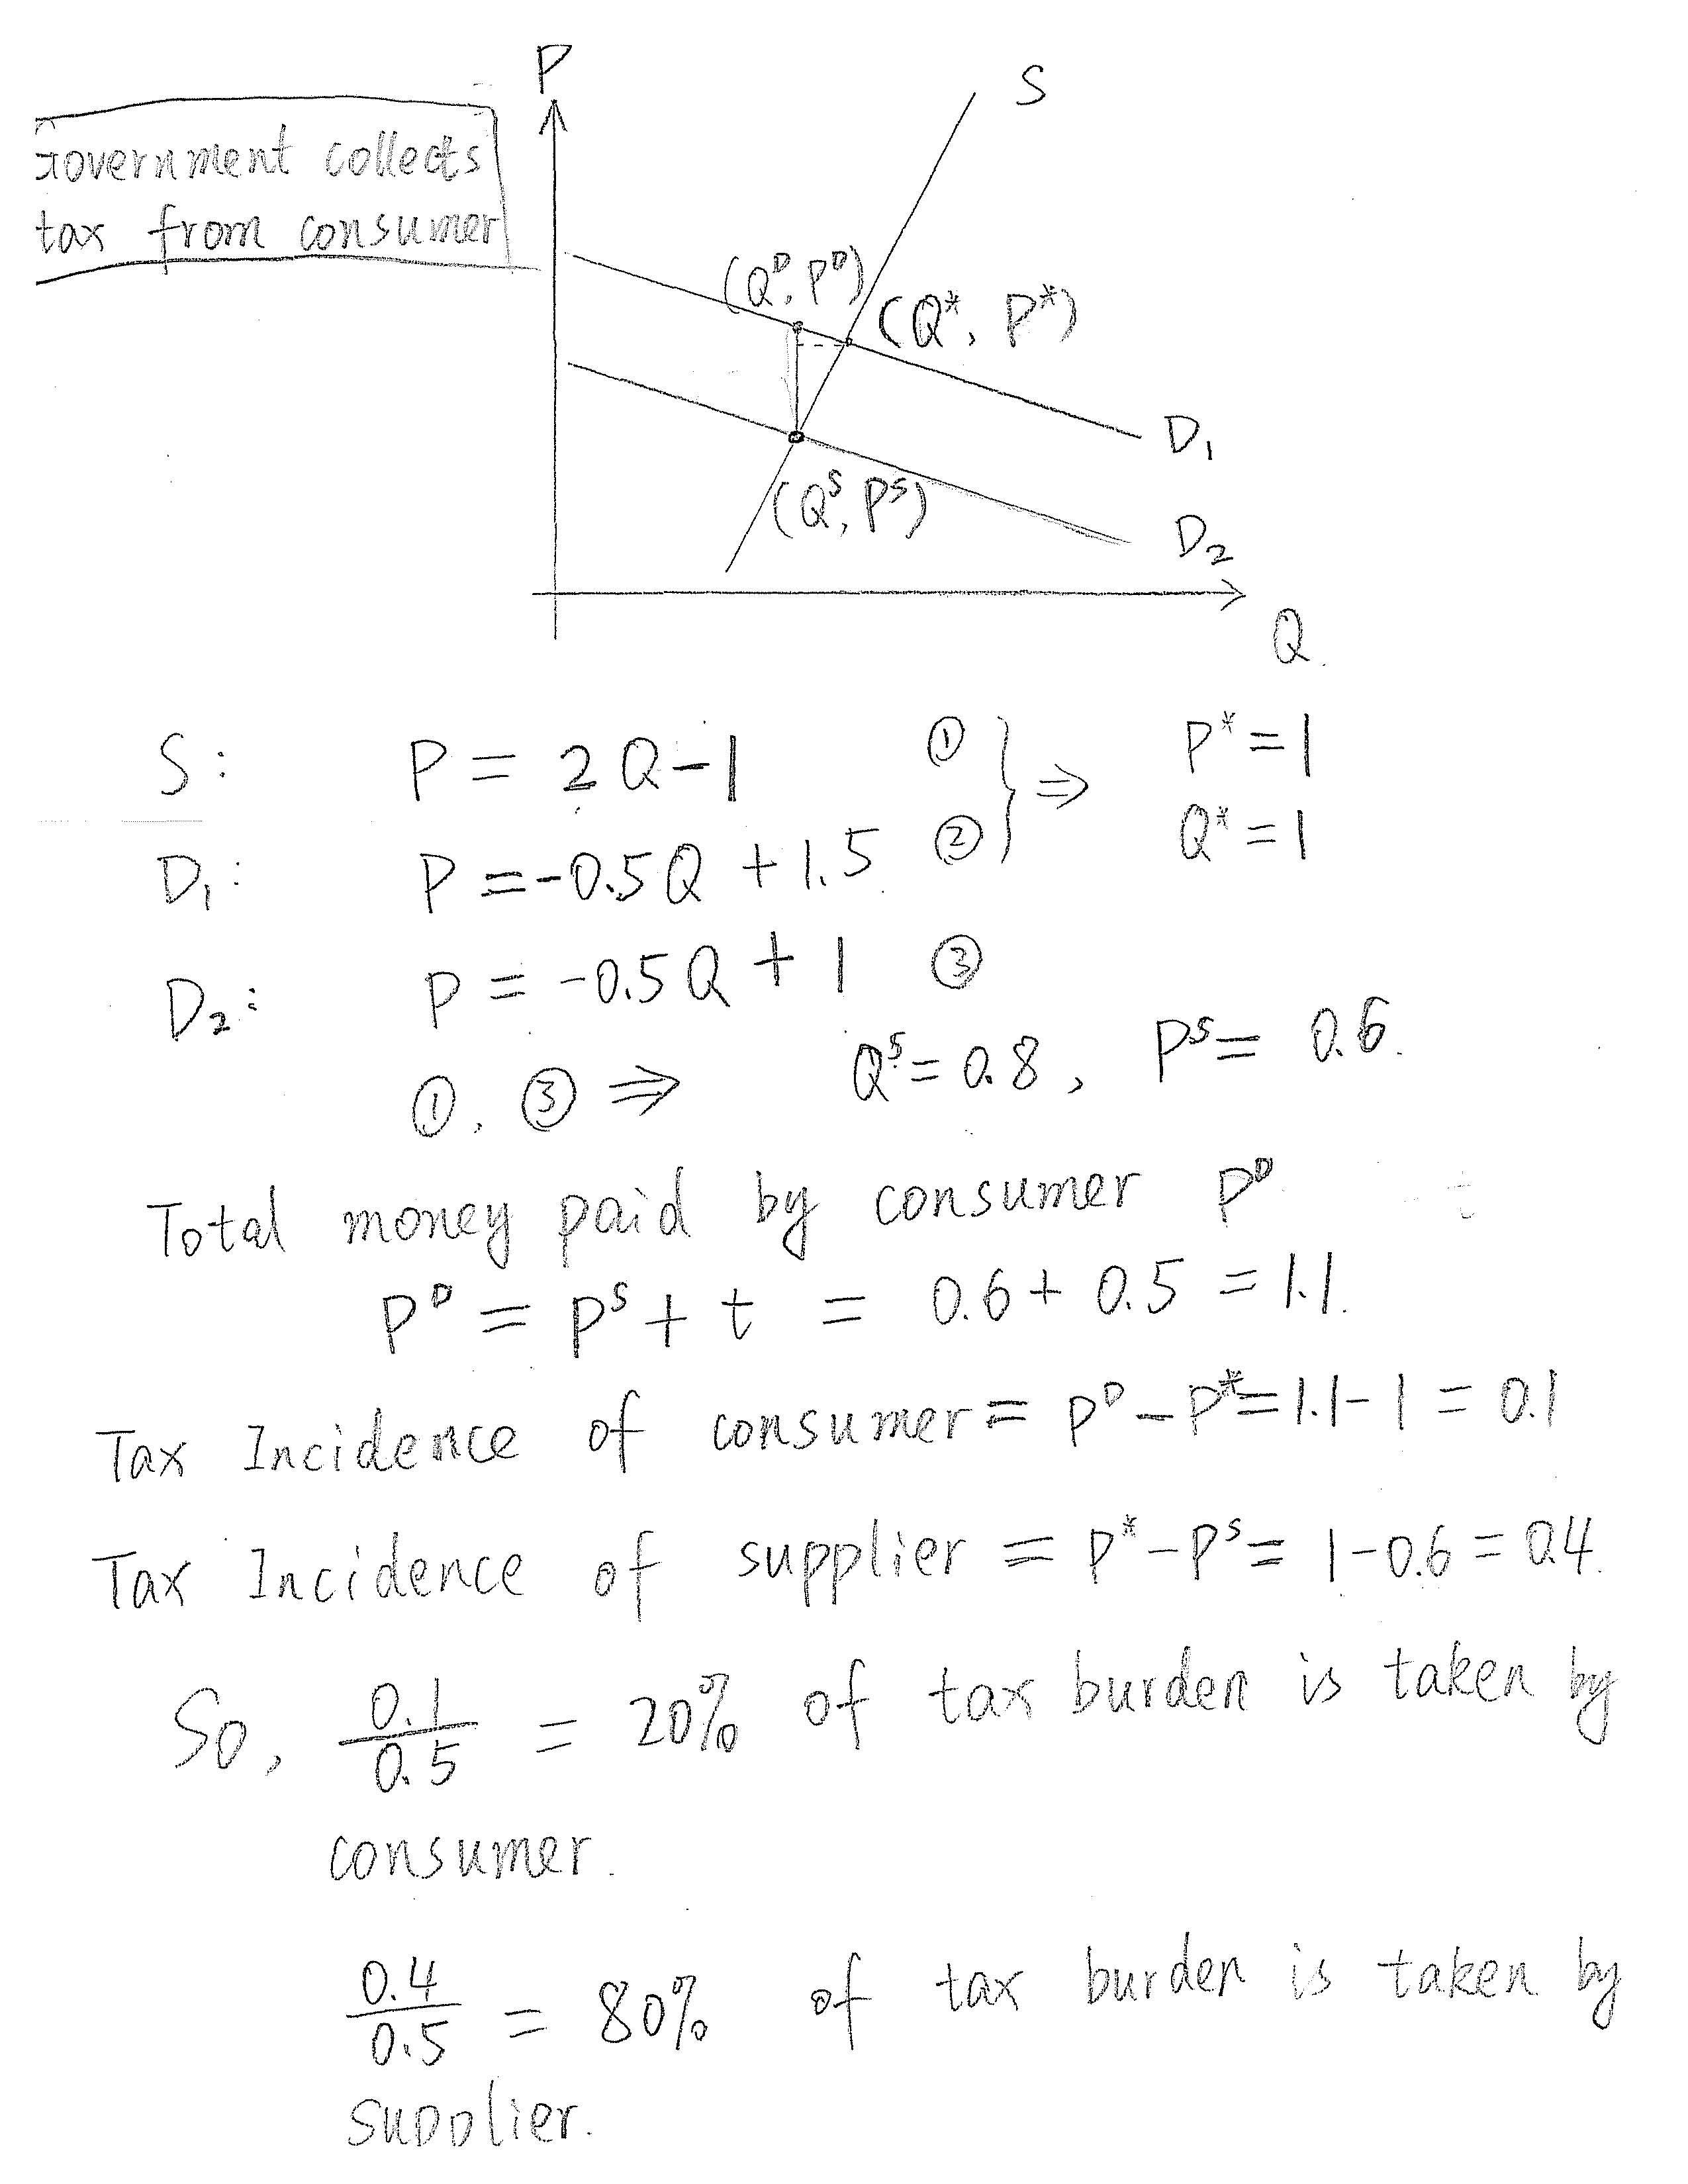 P
S
Government collects
tax from consumer
(Q^D, P^D)
(Q*, P*)
D₁
(Q^S, P^S)
D₂
Q
S: P = 2Q-1 ①
D₁: P = -0.5Q + 1.5 ②
} ⇒ P* = 1
Q* = 1
D₂: P = -0.5Q + 1 ③
①, ③ ⇒ Q^S = 0.8, P^S = 0.6.
Total money paid by consumer P^D
P^D = P^S + t = 0.6 + 0.5 = 1.1.
Tax Incidence of consumer = P^D - P* = 1.1 - 1 = 0.1
Tax Incidence of supplier = P* - P^S = 1 - 0.6 = 0.4.
So, 0.1/0.5 = 20% of tax burden is taken by
consumer.
0.4/0.5 = 80% of tax burden is taken by
supplier.